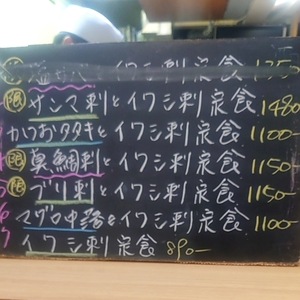 とイワシ刺定食
限 サンマ刺とイワシ刺定食 1480
かつおタタキとイワシ刺定食 1100-
限 真鯛刺とイワシ刺定食 1150-
限 ブリ刺とイワシ刺定食 1150-
マグロ中落とイワシ刺定食 1100-
イワシ刺定食 890-